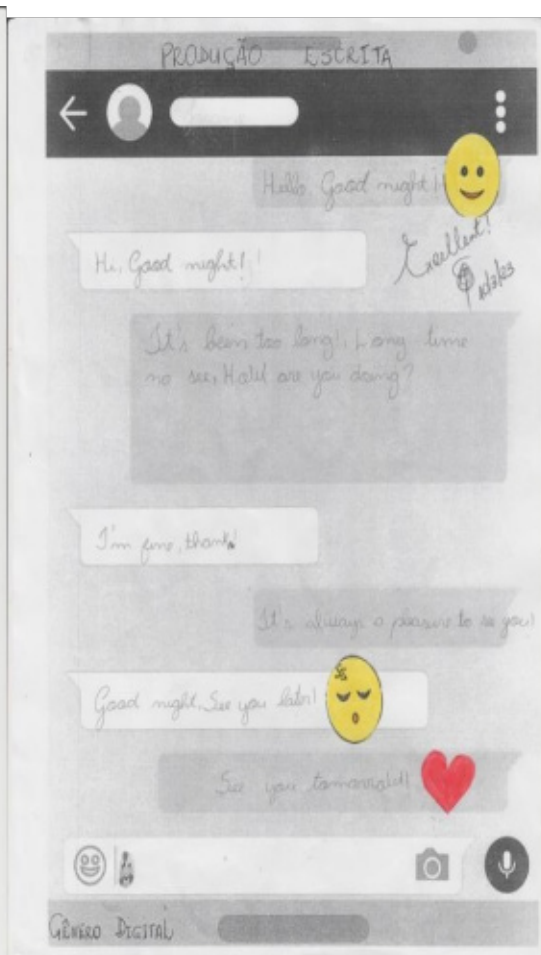 PRODUÇÃO ESCRITA
Hello, Good night!
Hi, Good night!
Excellent!
It's been too long!, Long time
no see, How are you doing?
I'm fine, thanks!
It's always a pleasure to se you!
Good night, See you later!
See you tomorrow!!
GÊNERO DIGITAL